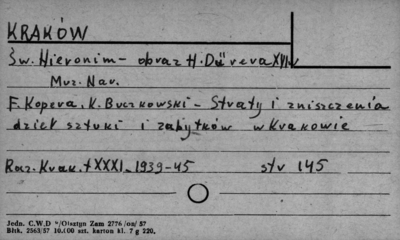 KRAKÓW
Św. Hieronim - obraz H. Dürera XVI w
Muz. Nar.
F. Kopera, K. Buczkowski - Straty i zniszczenia
dzieł sztuki i zabytków w Krakowie
Roz. Krak. t XXXI, 1939-45 str 145
Jedn. C.W.D /Olsztyn Zam 2776/on/57
Bltk. 2563/57 10.000 szt. karton kl. 7 g 220.